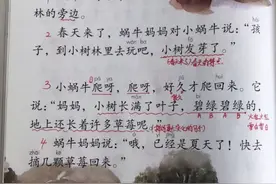 林的旁边。
2 春天来了，蜗牛妈妈对小蜗牛说：“孩
子，到小树林里去玩吧，小树发芽了。”
3 小蜗牛爬呀，爬呀，好久才爬回来。它
说：“妈妈，小树长满了叶子，碧绿碧绿的，
地上还长着许多草莓呢。”
4 蜗牛妈妈说：“哦，已经是夏天了！快去
摘几颗草莓回来。”